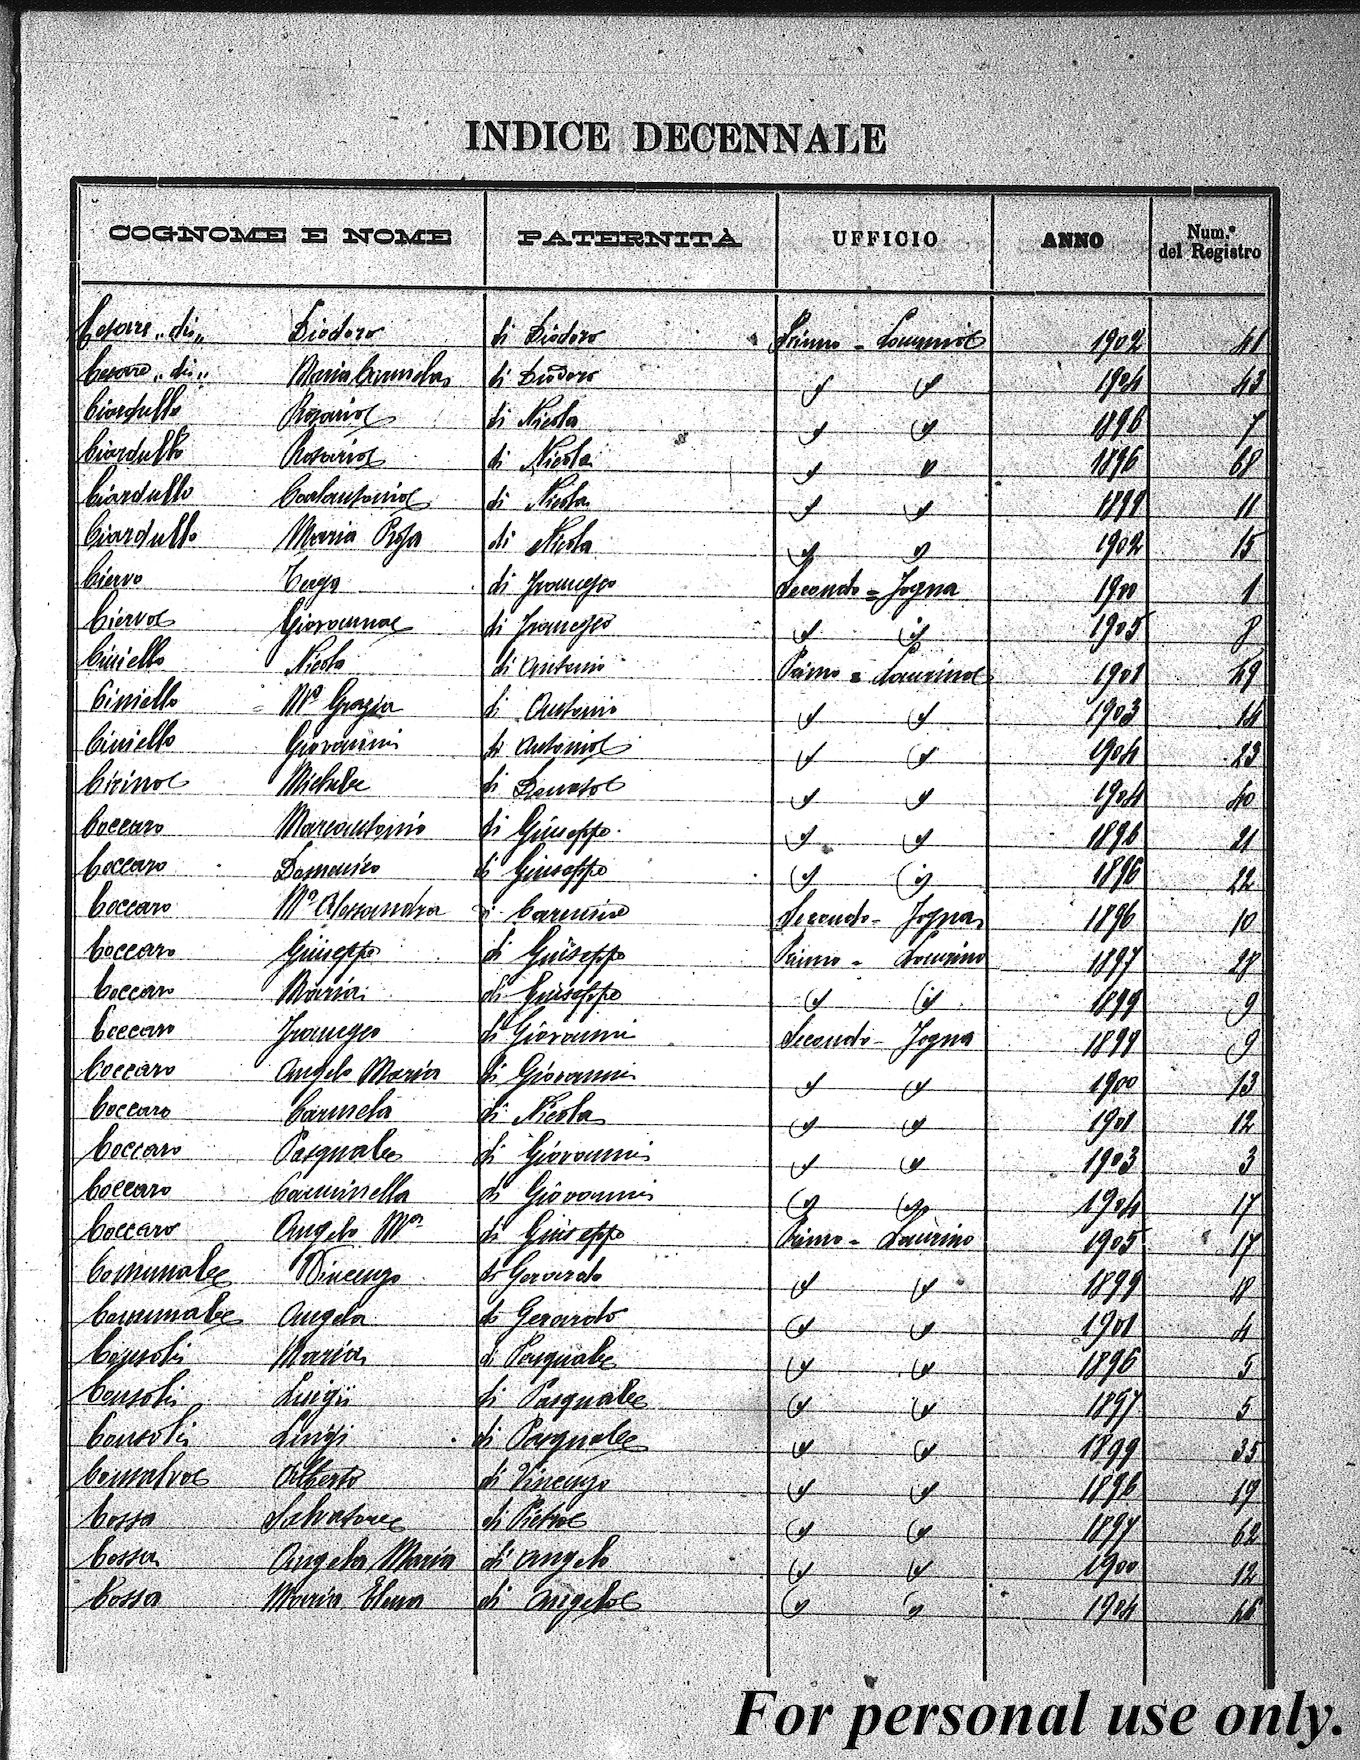 INDICE DECENNALE
COGNOME E NOME PATERNITÀ UFFICIO ANNO Num.º del Registro
Cesare „di„ Diodoro di Diodoro Primo = Laurino 1902 41
Cesare „di„ Maria Carmela di Diodoro 〃 〃 1904 43
Ciardullo Rosario di Nicola 〃 〃 1896 7
Ciardullo Rosario di Nicola 〃 〃 1896 68
Ciardullo Carlantonio di Nicola 〃 〃 1899 11
Ciardullo Maria Rosa di Nicola 〃 〃 1902 15
Ciervo di Francesco Secondo = Fogna 1900 1
Ciervo Giovanna di Francesco 〃 〃 1905 8
Ciniello Nicola di Antonio Primo = Laurino 1901 49
Ciniello Mª Grazia di Antonio 〃 〃 1903 14
Ciniello Giovanni di Antonio 〃 〃 1904 23
Cirino Michele di Donato 〃 〃 1904 40
Coccaro Marcantonio di Giuseppe 〃 〃 1896 21
Coccaro Domenico di Giuseppe 〃 〃 1896 22
Coccaro Mª Alessandra di Carmine Secondo - Fogna 1896 10
Coccaro Giuseppe di Giuseppe Primo = Laurino 1897 28
Coccaro Maria di Giuseppe 〃 〃 1899 9
Coccaro Francesco di Giovanni Secondo - Fogna 1899 9
Coccaro Angelo Maria di Giovanni 〃 〃 1900 13
Coccaro Carmela di Nicola 〃 〃 1901 12
Coccaro Pasquale di Giovanni 〃 〃 1903 3
Coccaro Carminella di Giovanni 〃 〃 1904 17
Coccaro Angelo Mª di Giuseppe Primo = Laurino 1905 17
Comunale Vincenzo di Gerardo 〃 〃 1899 18
Comunale Angela di Gerardo 〃 〃 1901 4
Consoli Maria di Pasquale 〃 〃 1896 5
Consoli Luigi di Pasquale 〃 〃 1897 5
Consoli Luigi di Pasquale 〃 〃 1899 35
Consalvo Alberto di Vincenzo 〃 〃 1896 19
Cossa Salvatore di Pietro 〃 〃 1897 62
Cossa Angela Maria di Angelo 〃 〃 1900 12
Cossa Maria Elena di Angelo 〃 〃 1904 46
For personal use only.